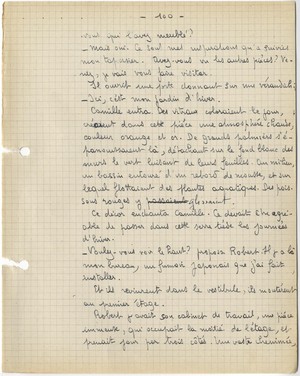 - 100 -
vous qui l'avez meublé ?
- Mais oui. Ce sont mes inspirations qu'a suivies
mon tapissier. Avez-vous vu les autres pièces ? Ve-
nez, je vais vous faire visiter.
Il ouvrit une porte donnant sur une véranda.
- Ici, c'est mon jardin d'hiver.
Camille entra. Des vitraux coloraient le jour,
dans cette pièce une atmosphère chaude,
couleur orange et or. De grands palmiers s'é-
panouissaient là, détachant sur le fond blanc des
murs le vert luisant de leurs feuilles. Au milieu,
un bassin entouré d'un rebord de mousse, et sur
lequel flottaient des plantes aquatiques. Des pois-
sons rouges y passaient glissaient.
Ce décor enchanta Camille. Ce devait être agré-
able de passer dans cette serre tiède les journées
d'hiver.
- Voulez-vous voir le haut ? proposa Robert. Il y a là
mon bureau, un fumoir japonais que j'ai fait
installer.
Et ils revinrent dans le vestibule, ils montèrent
au premier étage.
Robert y avait son cabinet de travail, une pièce
immense, qui occupait la moitié de l'étage, et
prenait jour par trois côtés. Une vaste cheminée,